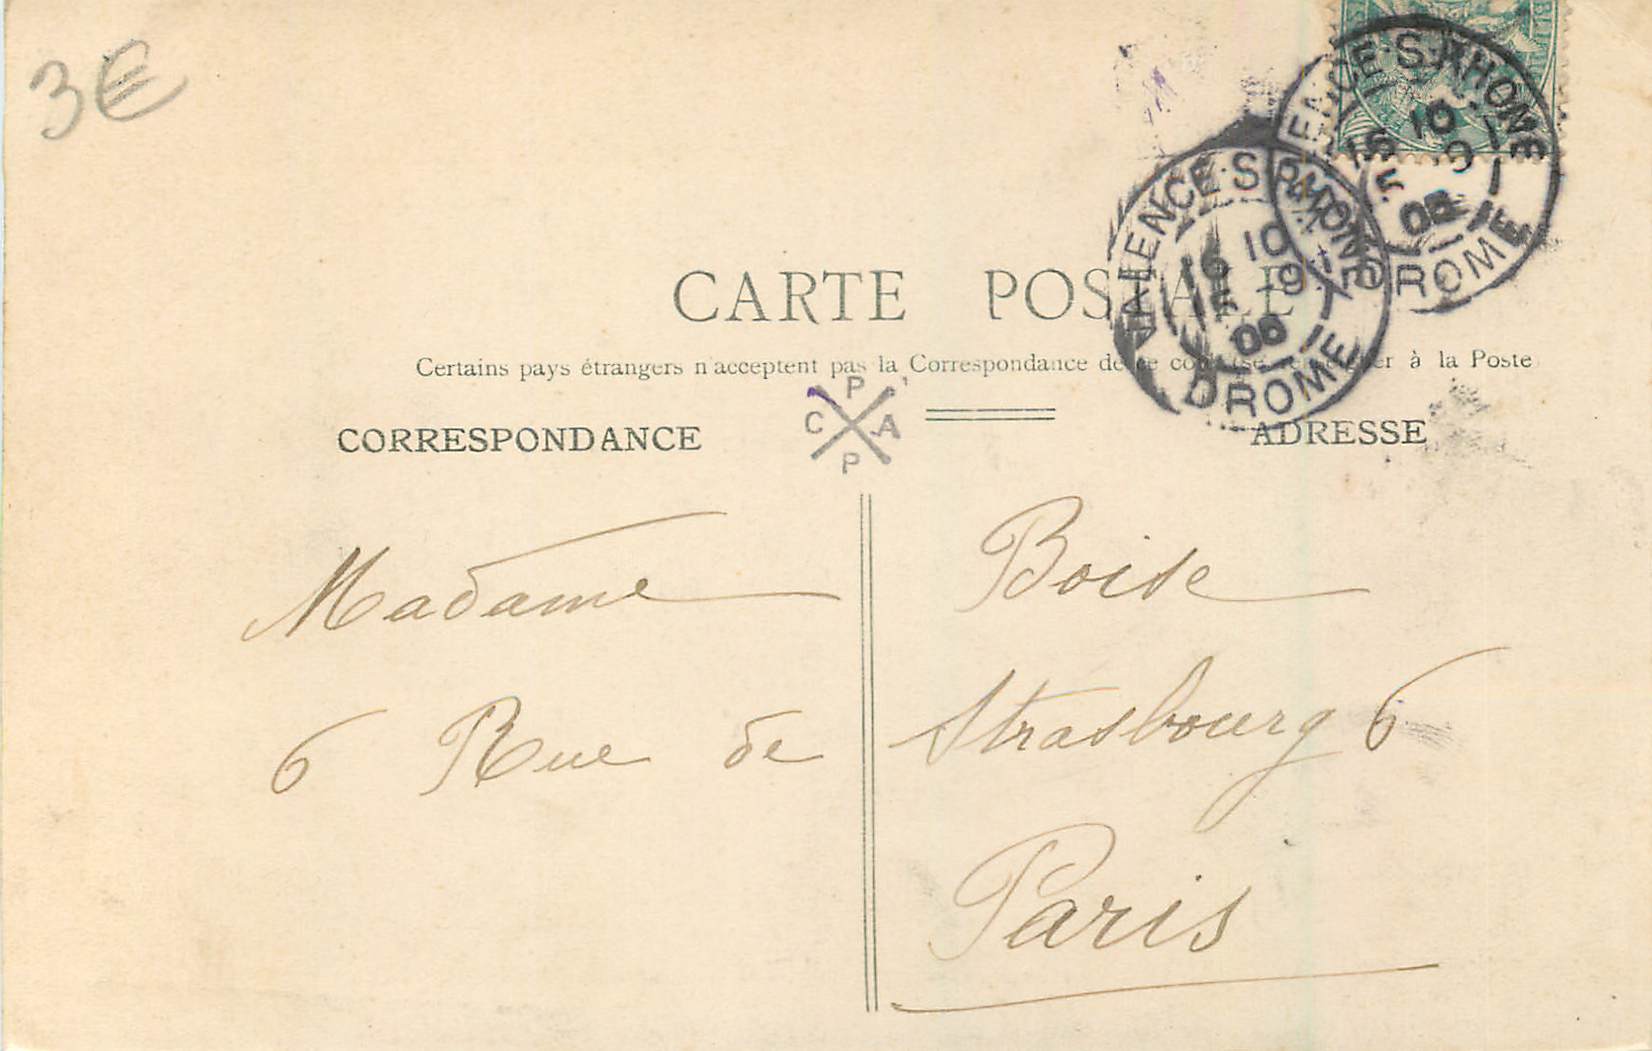 3€
VALENCE-S-RHONE
16 10
5 -9
06
DROME
VALENCE-S-RHONE
16 10
5 -9
06
DROME
CARTE POSTALE
Certains pays étrangers n'acceptent pas la Correspondance de ce côté (se renseigner à la Poste
P
C A
P
CORRESPONDANCE
ADRESSE
Madame Boise
6 Rue de Strasbourg 6
Paris